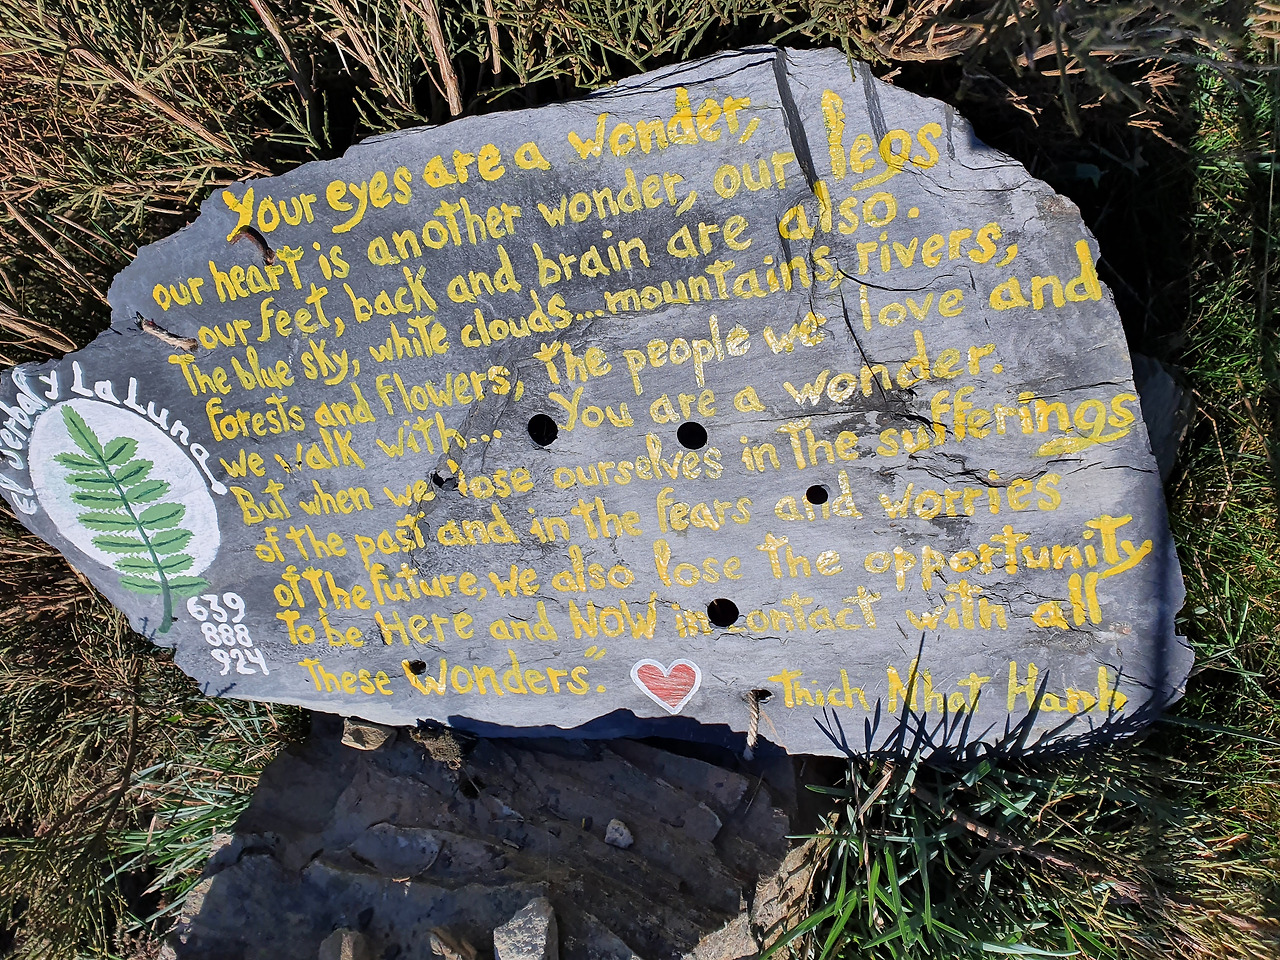 Your eyes are a wonder,
our heart is another wonder, our legs
our feet, back and brain are also.
The blue sky, white clouds...mountains, rivers,
forests and flowers, the people we love and
we walk with... You are a wonder.
But when we lose ourselves in the sufferings
of the past and in the fears and worries
of the future, we also lose the opportunity
to be Here and NOW in contact with all
these Wonders."
Thich Nhat Hanh
y La Luna
639
888
924